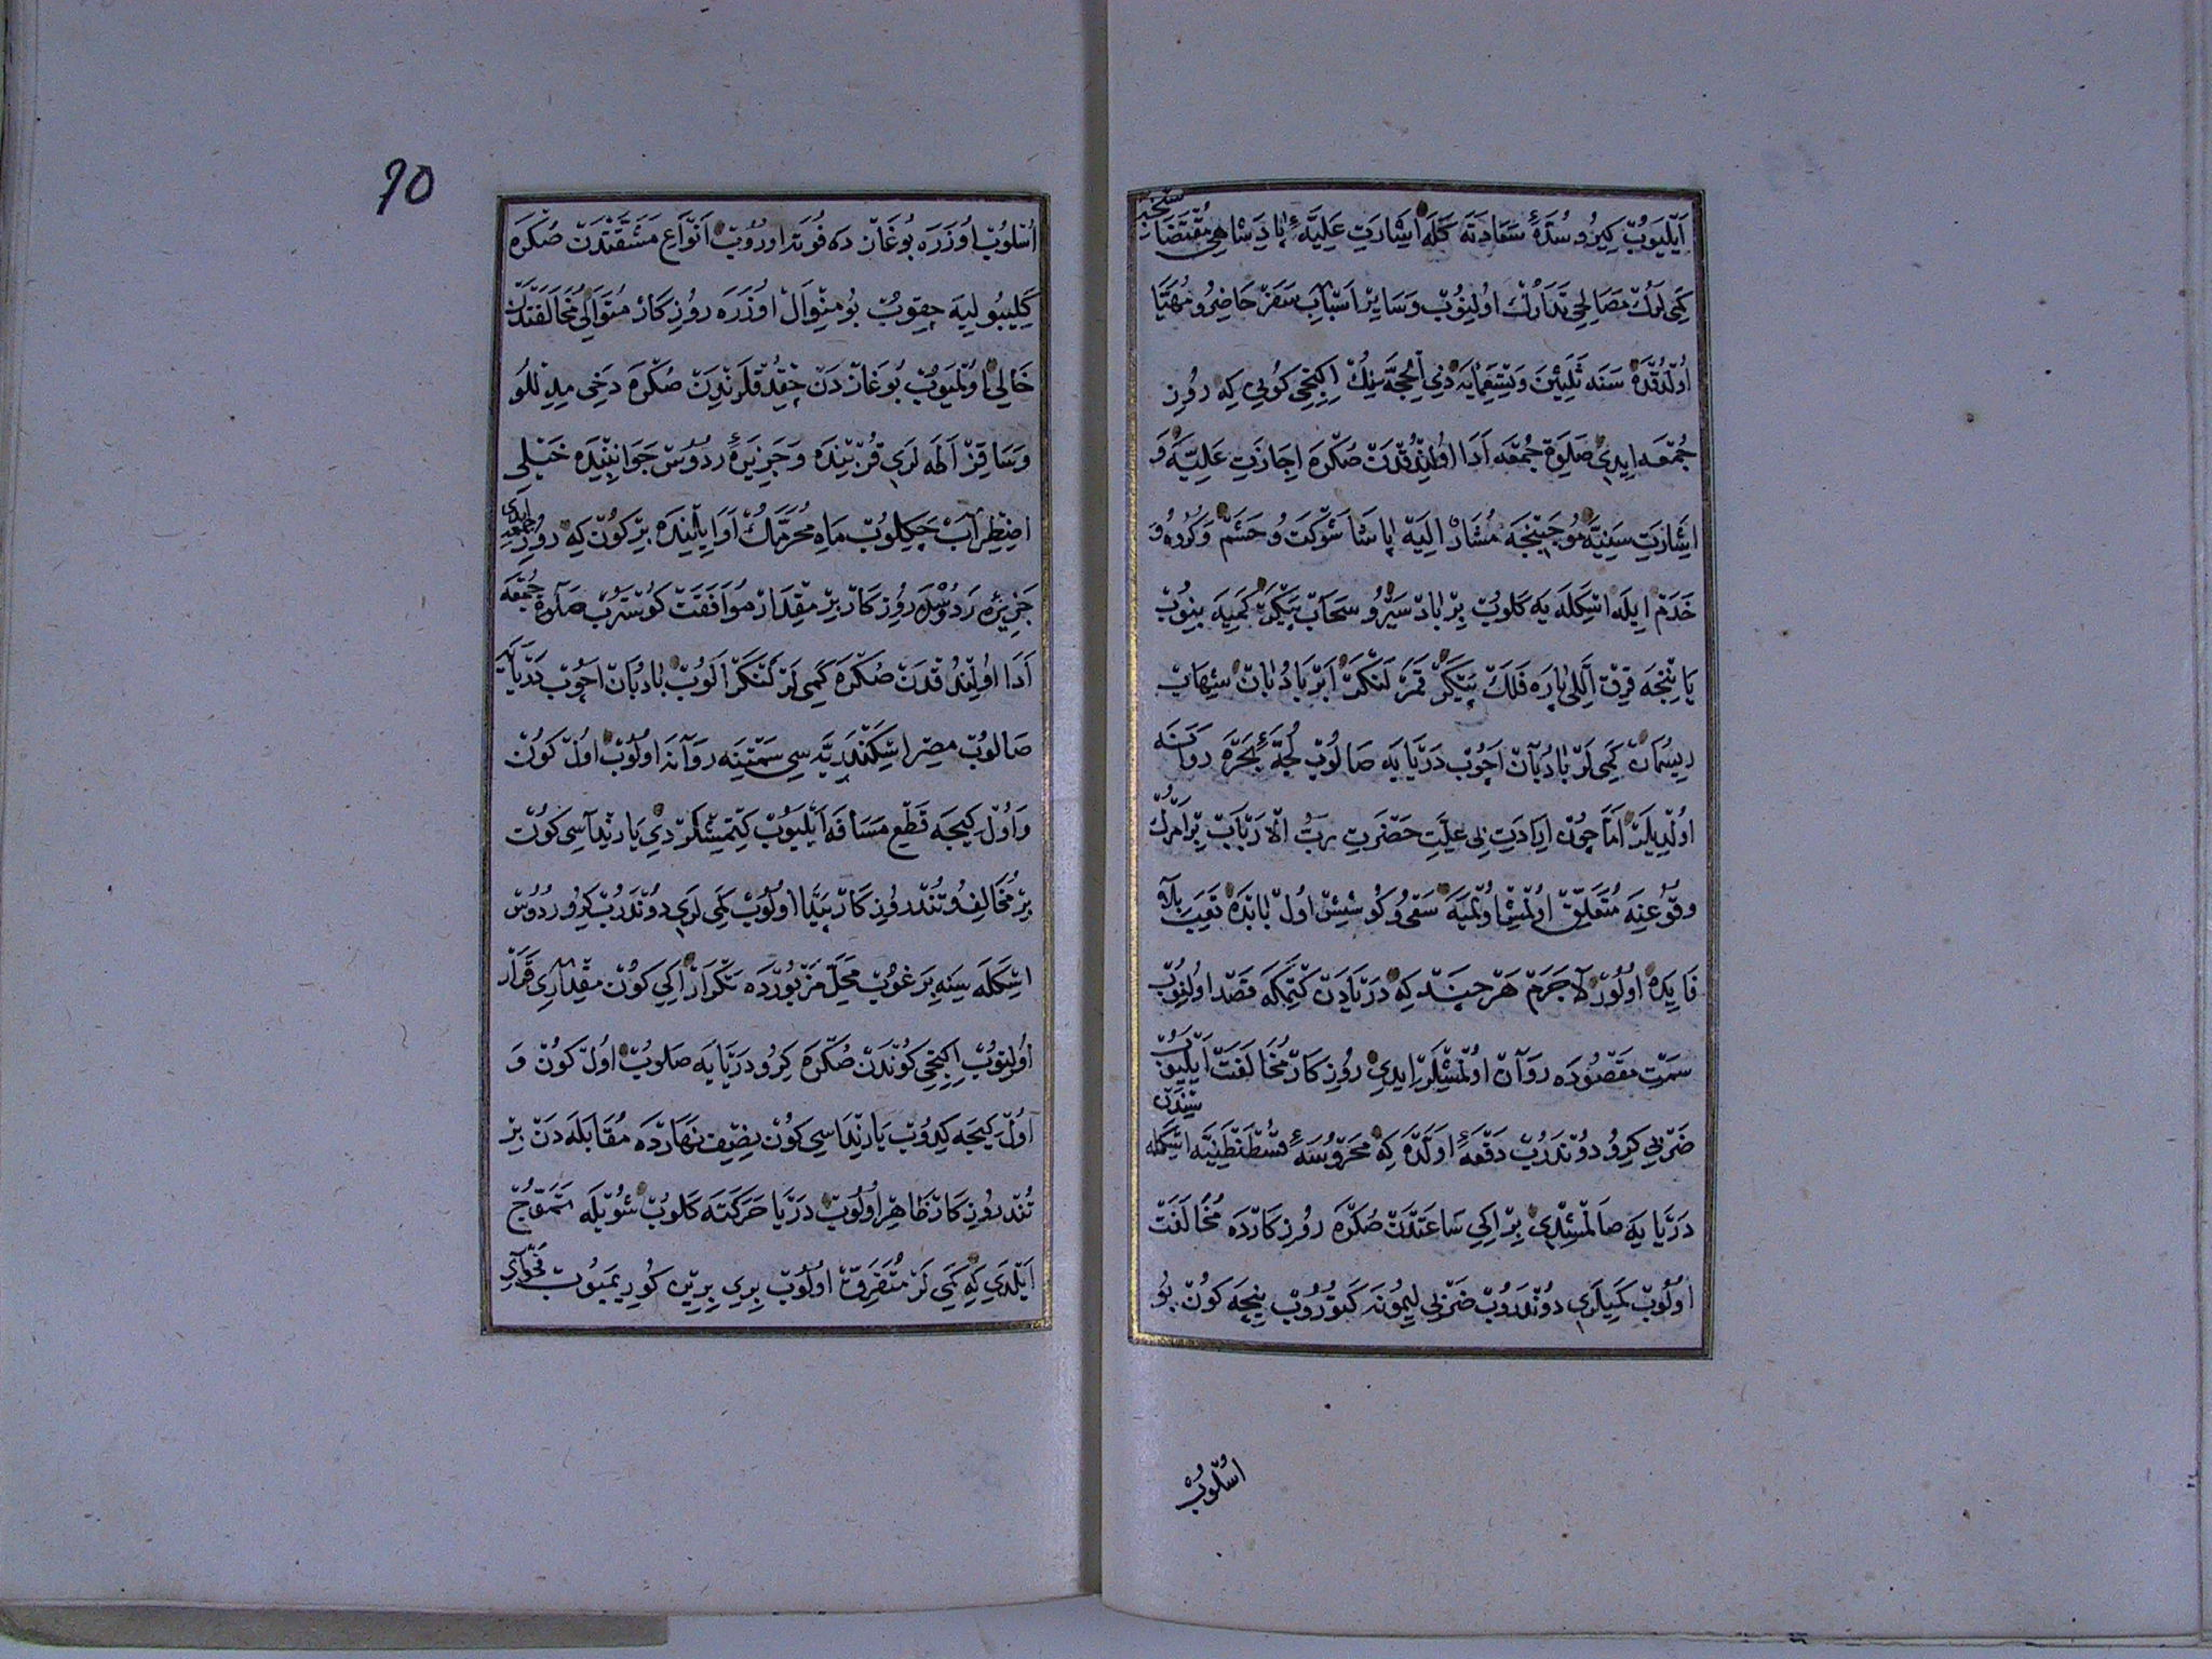 ايليوب كيرو سدۀ سعادته كله اشارت عليۀ پادشاهى مقتضاسنجه
كمى لرك مصالحى تدارك اولنوب و ساير اسباب سفر حاضر و مهيا
اولدقده سنه ثلثين و تسعمايه ذى الحجه سنك ايكنجى كونى كه روز
جمعه ايدى صلوة جمعه ادا اولندقدن صكره اجازت عليه و
اشارت سنيه موجبنجه مشار اليه پاشا شوكت و حشم و كروه و
خدم ايله اسكله يه كلوب بر باد سير و سحاب پيكر كميه بنوب
ياننجه قرق اللى پاره فلك پيكر قمر لنكر ابر بادبان شهاب
ريسمان كمى لر بادبان اچوب دريايه صالوب لجۀ بحره روانه
اولديلر اما چون ارادت بى علت حضرت رب الارباب بر امرك
وقوعنه متعلق اولمش اولميه سعى و كوشش اول بابده تعب بلا
فايده اولور لا جرم هر چند كه دريادن كتمكه قصد اولنوب
سمت مقصوده روان اولمشلر ايدى روزكار مخالفت ايليوب
ضربى كيرو دوندروب دفعۀ اولده كه محروسۀ قسطنطنيه اسكله سندن
دريايه صالمشلدى بر ايكى ساعتدن صكره روزكارده مخالفت
اولوب كميلرى دوندروب ضربى ليمونه كتوروب نيجه كون بو
اسلوب
90
اسلوب اوزره بوغازده فورتد اوروب انواع مشقتدن صكره
كليبوليه چقوب بو منوال اوزره روزكار متوالى مخالفتدن
خالى اولميوب بوغازدن چقدقلرندن صكره دخى مدللو
و ساقز اطه لرى قربنده و جزيرۀ ردوس جوانبنده خيلى
اضطراب چكلوب ماه محرمك اوايلنده بر كون كه روز جمعه ايدى
جزيرۀ ردوسده روزكار بر مقدار موافقت كوسترب صلوة جمعه
ادا اولندقدن صكره كمى لر لنكر الوب بادبان اچوب دريايه
صالوب مصر اسكندريه سى سمتنه روانه اولوب اول كون
و اول كيجه قطع مسافه ايليوب كتمشلردى يارنداسى كون
بر مخالف و تند روزكار پيدا اولوب كمى لرى دوندرب كيرو ردوس
اسكله سنه برغوب محل مزبورده تكرار ايكى كون مقدارى قرار
اولنوب ايكنجى كوندن صكره كيرو دريايه صلوب اول كون و
اول كيجه كيدوب يارنداسى كون نصف نهارده مقابله دن بر
تند روزكار ظاهر اولوب دريا حركته كلوب شويله تموج
ايلدى كه كمى لر متفرق اولوب برى برين كوريميوب فحواى